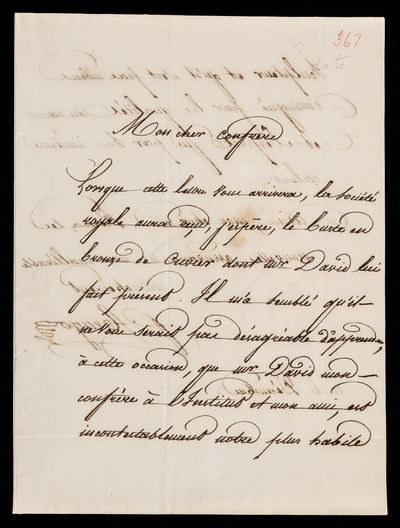 367
? date
Mon cher confrère
Lorsque cette lettre vous arrivera, la société
royale aura reçu, j'espère, le buste en
bronze de Cuvier dont mr David lui
fait présent. Il m'a semblé qu'il
ne vous serait pas désagréable d'apprendre,
à cette occasion, que mr David mon
confrère à l'Institut et mon ami, est
incontestablement notre plus habile